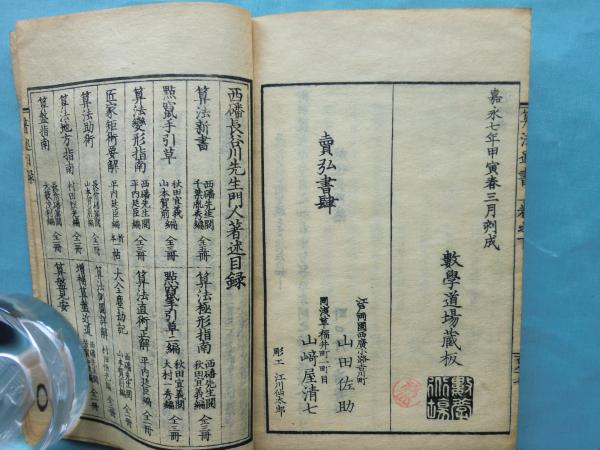 嘉永七年甲寅春三月刻成
數學道場藏板
賣弘書肆
江戸両國西廣小路吉川町
山田佐助
同浅草福井町一町目
山﨑屋清七
彫工 江川仙太郎
數學道場
西磻長谷川先生門人著述目録
算法新書 西磻先生閲 千葉胤秀編 全五冊
算法極形指南 西磻先生閲 秋田宜義編 全三冊
點竄手引草 秋田宜義閲 山本賀前編 全三冊
點竄手引草二編 秋田宜義閲 大村一秀編 全三冊
算法變形指南 西磻先生閲 平内廷臣編 全二冊
算法直術正解 平内廷臣編 全二冊
匠家矩術要解 平内廷臣編 全一冊
大全塵劫記
算法助術 山本賀前編 全一冊
算法地方指南 村田恒光編 全一冊
増補算盤近道
算盤指南
算盤見安